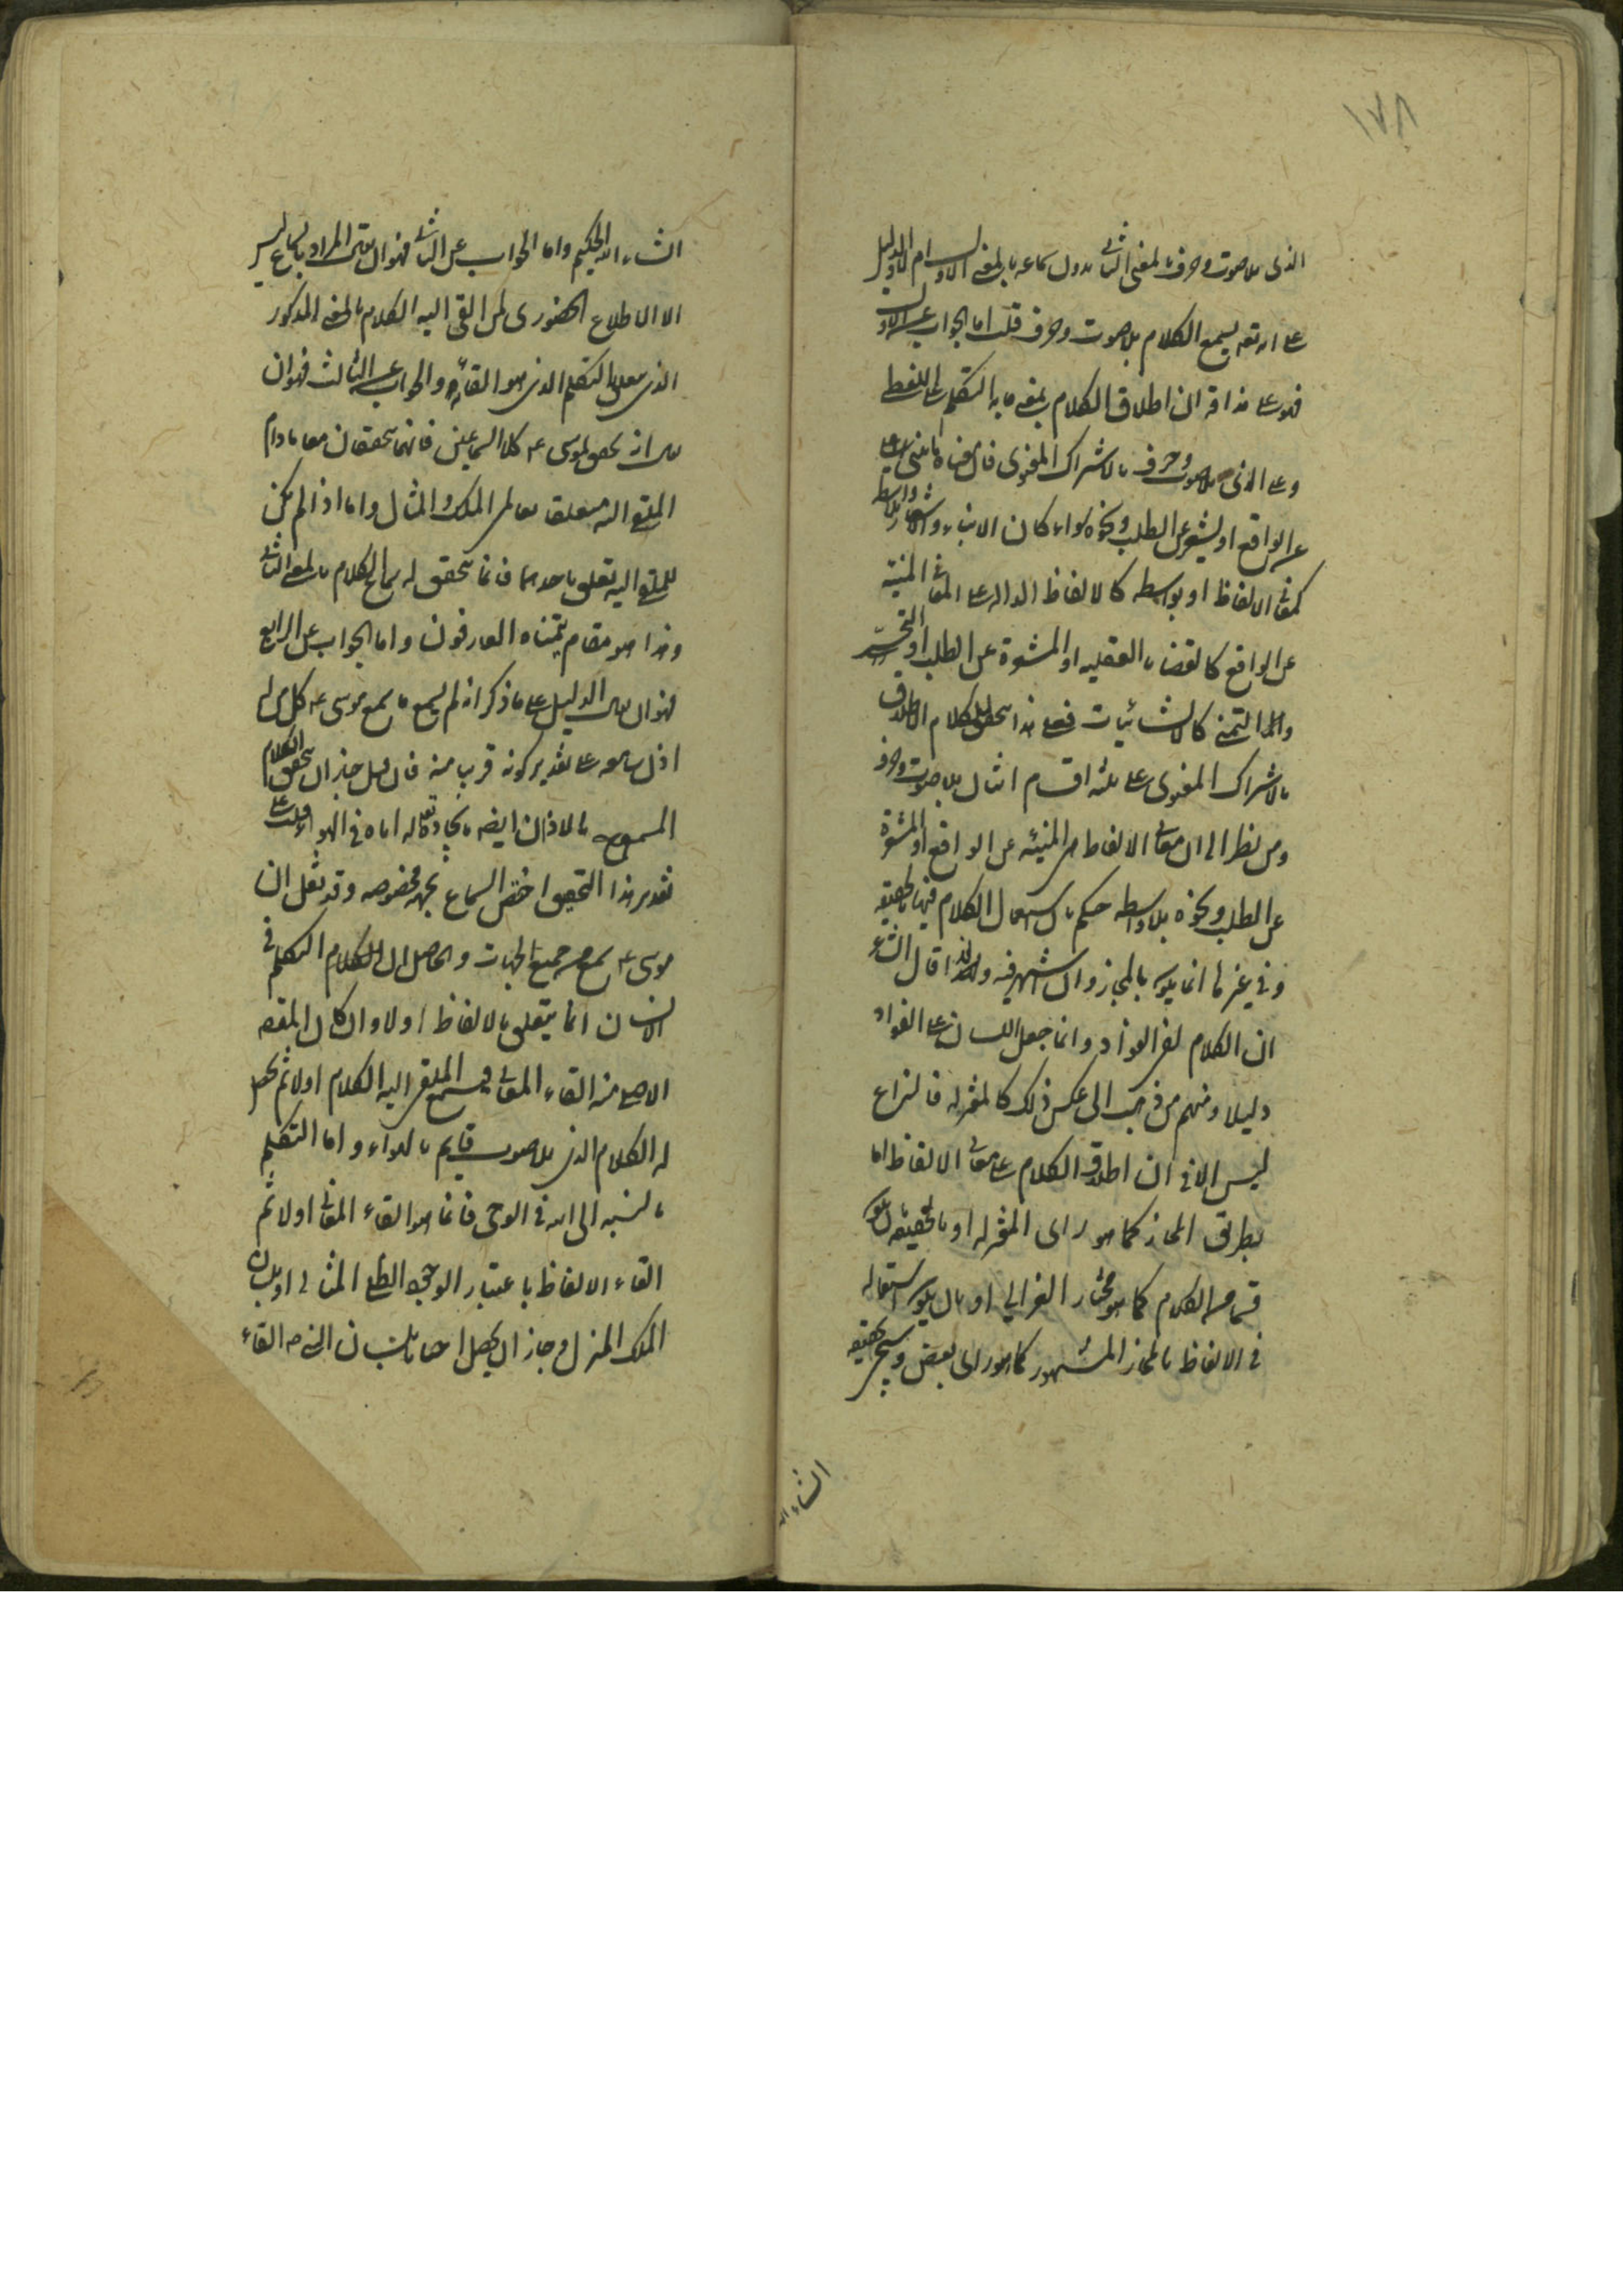 ١٧٨
الذى بلا صوت وحرف بالمعنى الثانى بدون سماعه بالمعنى الاول
على انه تعه يسمع الكلام بلا صوت وحرف قلت اما الجواب عن الاول
فهو على مذاقه ان اطلاق الكلام بمعنى ما به التكلم على اللفظ
وعلى الذى بلا صوت وحرف بالاشتراك المعنوى فان معناه ما ينبئ
عن الواقع او يشعر عن الطلب ونحوه سواء كان الانباء والاشعار بلا واسطه
كمعانى الالفاظ او بواسطه كالالفاظ الداله على المعانى المنبئه
عن الواقع كالقضايا العقليه او المشعرة عن الطلب او التحسر
والتمنى كالانشائيات فعلى هذا للكلام
بالاشتراك المعنوى على ثلثه اقسام بلا صوت وحرف
ومن نظر الى ان معانى الالفاظ هى المنبئه عن الواقع او المشعرة
عن الطلب ونحوه بلا واسطه حكم بان استعمال الكلام فيها بالحقيقه
وفى غيرها انما يكون بالمجاز وان اشتهر فيه ولهذا قال الشاعر
ان الكلام لفى الفؤاد وانما جعل اللسان على الفواد
دليلا ومنهم من ذهب الى عكس ذلك كالمعتزله فالنزاع
ليس الا فى ان اطلاق الكلام على معانى الالفاظ اما
بطريق المجاز كما هو راى المعتزله او بالحقيقه بان يكون
قسما من الكلام كما هو مختار الغزالى او بان يكون استعماله
فى الالفاظ بالمجاز المشهور كما هو راى بعض وسيجئ تحقيقه
انشاء الله
انشاء الله الحكيم واما الجواب عن الثانى فهو ان المراد بالسماع ليس
الا الاطلاع الحضورى لمن القى اليه الكلام بالمعنى المذكور
الذى التكلم الذى هو القائه والجواب عن الثالث فهو ان
لموسى عه كلا السماعين فانهما متحققان معا مادام
الملقى اليه متعلقا بعالمى الملك والمثال واما اذا لم يكن
للملقى اليه تعلق باحدهما فانما يتحقق له سماع الكلام بالمعنى الثانى
وهذا هو مقام يتمناه العارفون واما الجواب عن الرابع
فهو ان الدليل على ما ذكر انه لم يسمع ما سمع موسى عه كل من له
اذن سامعه على تقدير كونه قريبا منه فان قيل جاز ان يتحقق الكلام
المسموع بالاذان ايضه بايجاده تعاله اياه فى الهواء قلت على
تقدير هذا التحقيق اختص السماع بجهه مخصوصه وقد نقل ان
موسى عه سمع من جميع الجهات والحاصل ان الكلام التكلم فى
الانسان انما يتعلق بالالفاظ اولا وان كان المقصد
الاصلى منه القاء المعانى فيسمع الملقى اليه الكلام اولا ثم يحصل
له الكلام الذى بلا صوت قايم بالهواء واما التكلم
بالنسبه الى الله فى الوحى فانما هو القاء المعانى اولا ثم
القاء الالفاظ باعتبار الوجود المثالى او بلسان
الملك المنزل وجاز ان يحصل احيانا بلسان النبى صه القاء